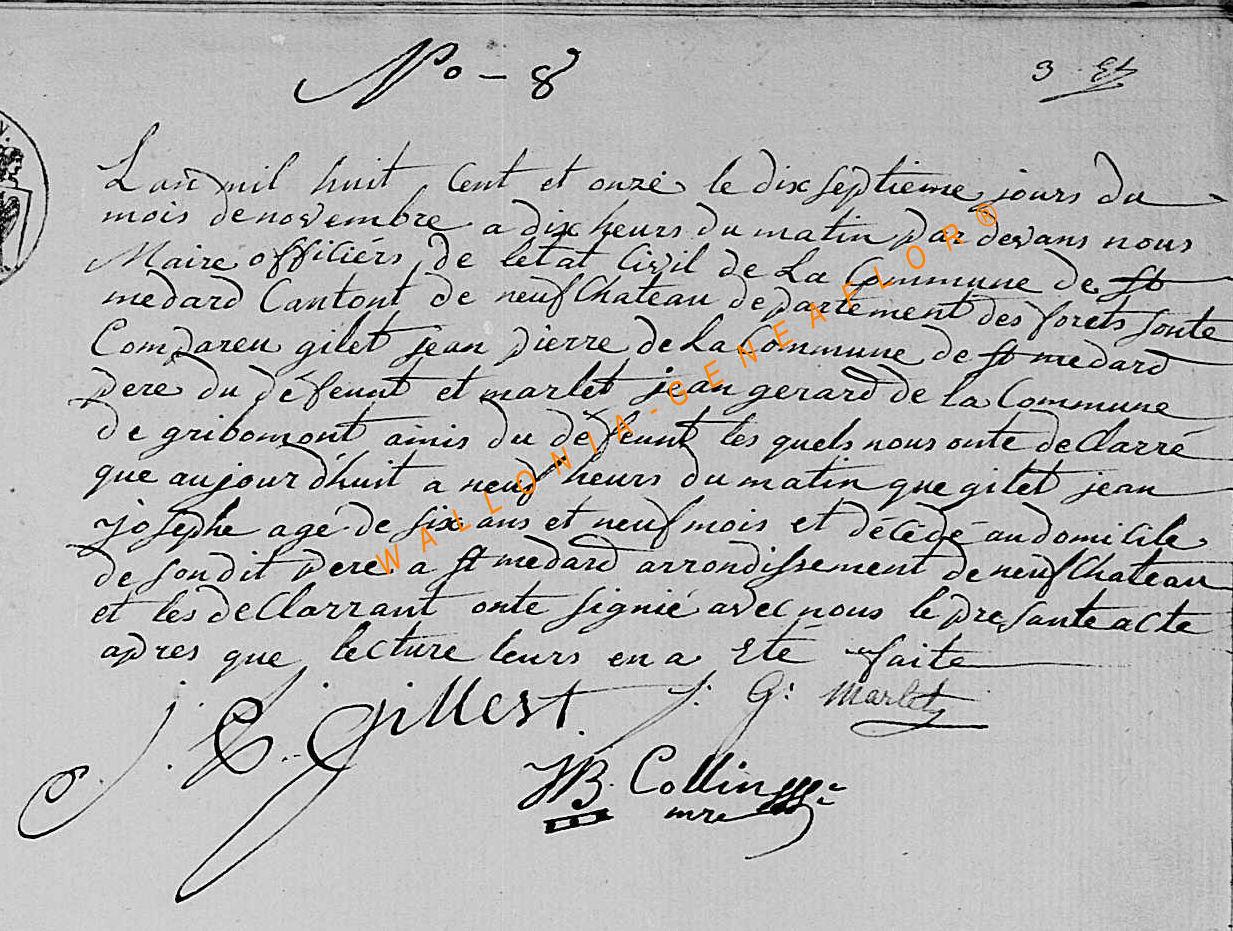 No - 8
3 Et
L an mil huit Cent et onze le dix septieme jours du
mois de novembre a dix heurs du matin par devans nous
Maire officiérs de letat Civil de La Commune de st
medard Cantont de neufChateau departement des forets sonte
Compareu gilet jean pierre de La Commune de st medard
pere du défeunt et marlet jean gerard de la Commune
de gribomont amis du defeunt les quels nous onte deClarré
que aujourd'huit a neuf heurs du matin que gilet jean
josephe agé de six ans et neuf mois et décédé au domicile
de son dit pere a st medard arrondissement de neufChateau
et les deClarrant onte signié avec nous le presante acte
apres que lecture leurs en a Eté faite
j. P. Gillest J. G: Marlet
JB. Collin
mre
WALLONIA-GENEAFLOR®